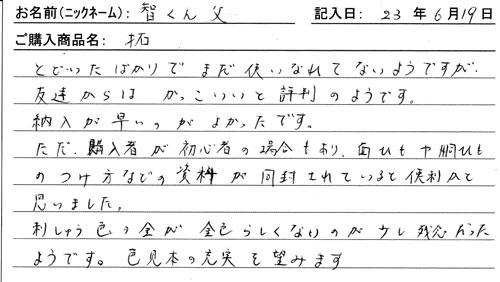 お名前(ニックネーム): 智くん父 記入日: 23年6月19日
ご購入商品名: 拓
とどいたばかりでまだ使いなれてないようですが、
友達からはかっこいいと評判のようです。
納入が早いのがよかったです。
ただ、購入者が初心者の場合もあり、面ひもや胴ひも
のつけ方などの資料が同封されていると便利かと
思いました。
刺しゅう色の金が金色らしくないのが少し残念だった
ようです。色見本の充実を望みます